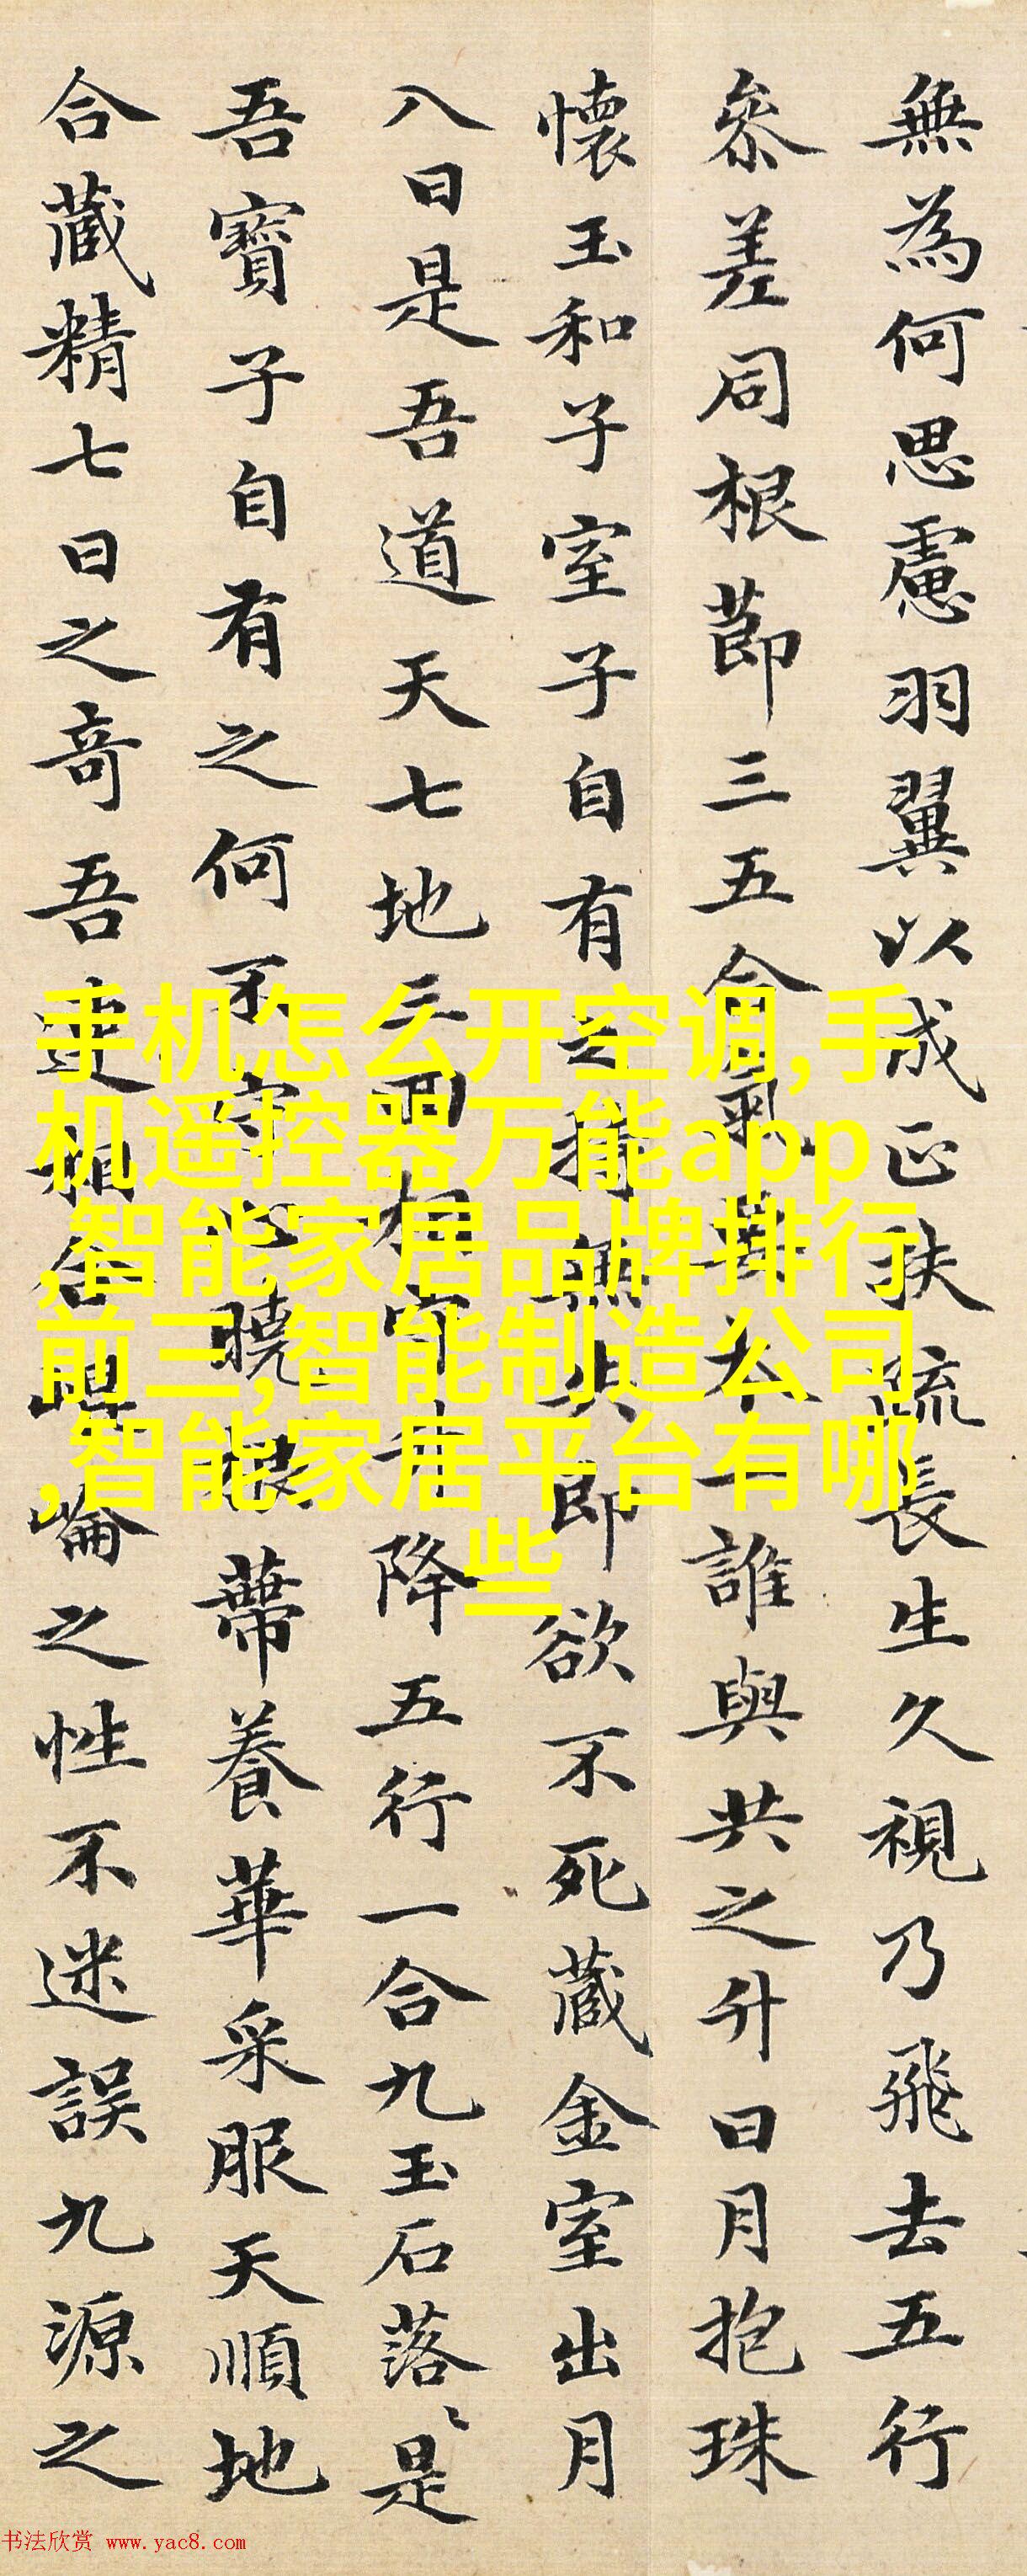 無為何思慮羽翼以成正扶疏長生久視乃飛去五行
叅差同根莭三五合氣要本一誰與共之升日月抱珠
懷玉和子室子自有之持無失即欲不死藏金室出月
入日是吾道天七地三回相守升降五行一合九玉石落〻是
吾寶子自有之何不守心曉根蔕養華采服天順地
合藏精七日之奇吾連相合崐崘之性不迷誤九源之
手机怎么开空调,手
机遥控器万能app
,智能家居品牌排行
前三,智能制造公司
,智能家居平台有哪
些
书法欣赏 www.yac8.com